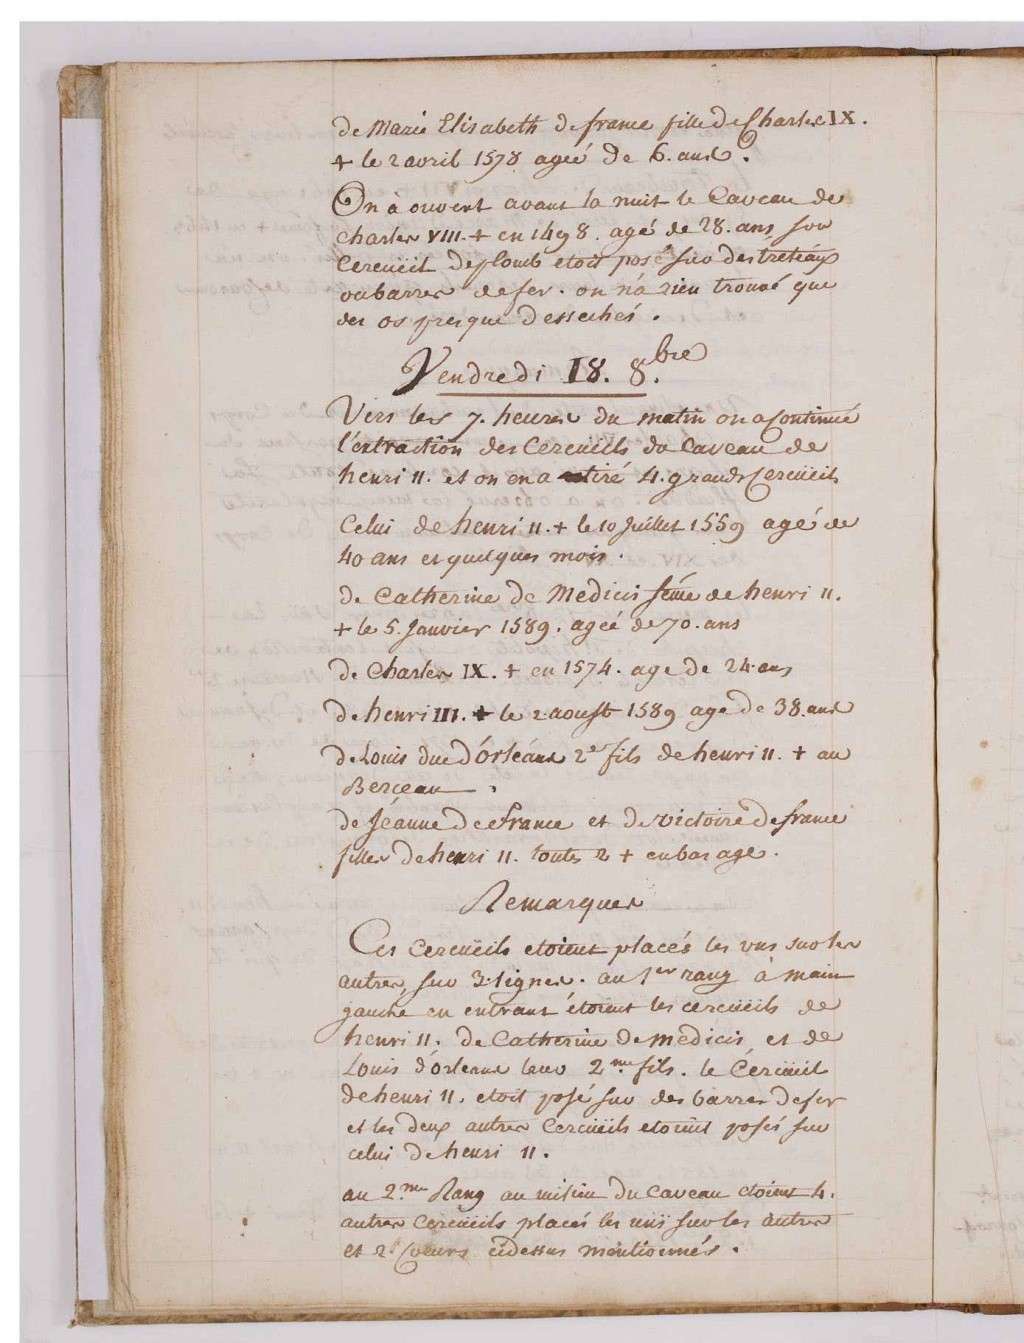 de Marie Elisabeth de france fille de Charles IX.
+ le 2 avril 1578 ageé de 6. ans.
On a ouvert avant la nuit le Caveau de
Charles VIII. + en 1498. agé de 28. ans, son
Cercüeil de plomb etoit posé sur des treteaux
ou barres de fer. on n'a rien trouvé que
des os presque dessechés.
Vendredi 18. 8.bre
Vers les 7. heures du matin on a Continué
l'extraction des Cercueils du Caveau de
henri II. et on en a tiré 4. grands Cercüeils
Celui de henri II. + le 10 Juillet 1559 agé de
40 ans et quelques mois.
de Catherine de Medicis féme de henri II.
+ le 5. Janvier 1589. ageé de 70. ans
de Charles IX. + en 1574. age de 24. ans
de henri III. + le 2 aoust 1589 age de 38. ans
de Louis duc d'Orléans 2e fils de henri II. + au
Berceau.
de Jéanne de France et de victoire de france
filles de henri II. toutes 2 + en bas age.
Remarques
Ces cercüeils etoient placés les uns sur les
autres, sur 3. lignes. au 1er rang à main
gauche en entrant étoient les cercüeils de
henri II. de Catherine de medicis, et de
Louis d'orleans leur 2.me fils. le Cercüeil
de henri II. etoit posé sur des barres de fer
et les deux autres Cercüeils etoient posés sur
celui de henri II.
au 2.me Rang au milieu du caveau etoient 4.
autres cercüeils placés les uns sur les autres
et 2. Coeurs cidessus mentionnés.